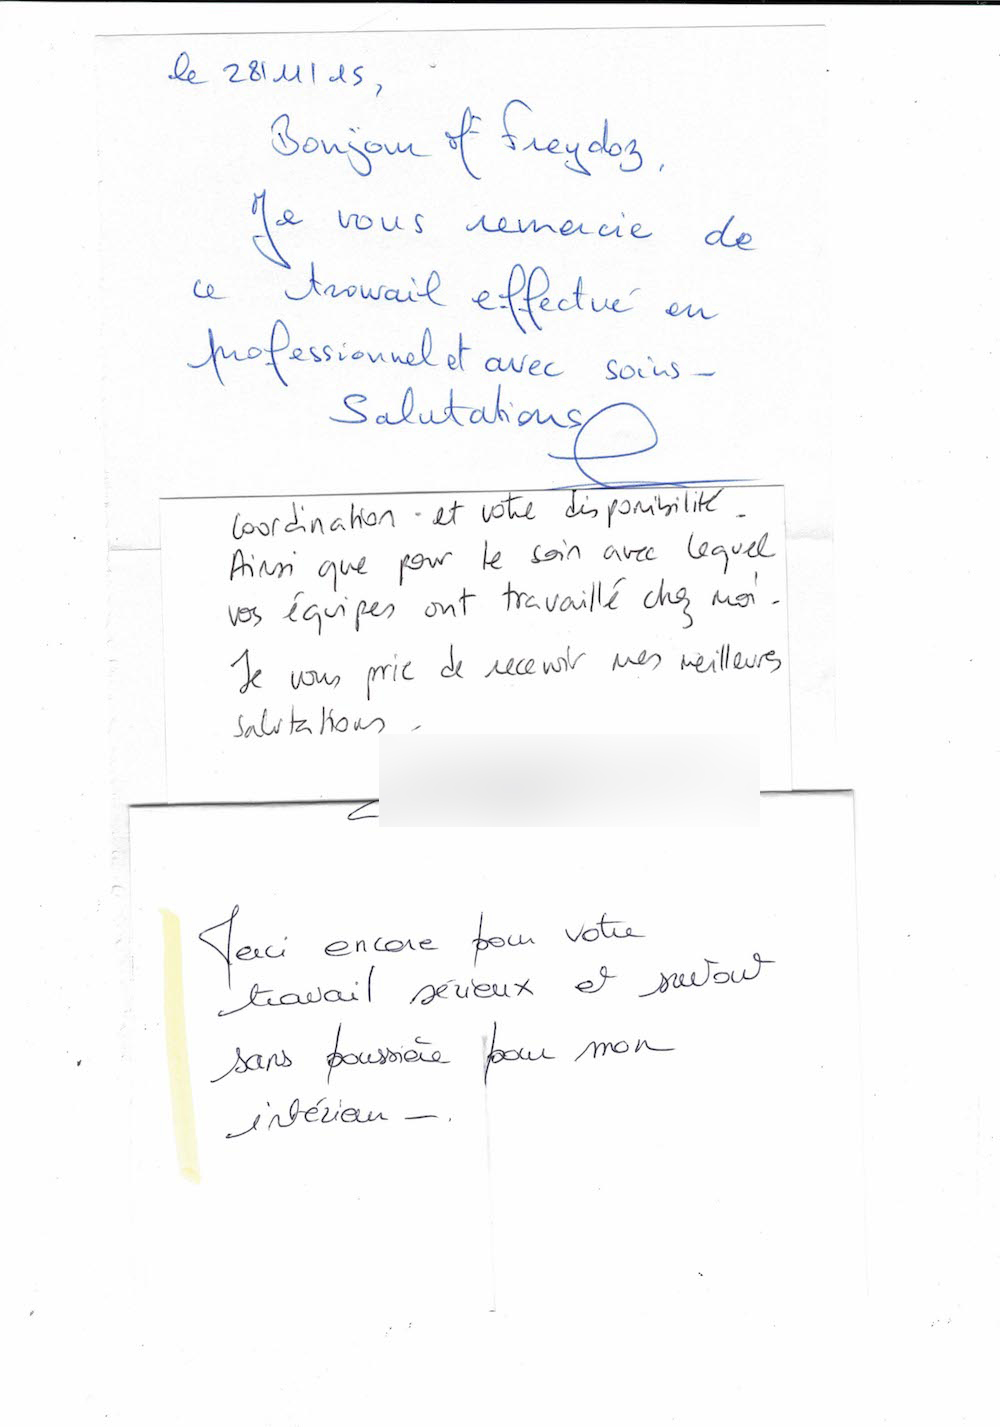 le 28/11/15,
Bonjour Mr Freydoz,
Je vous remercie de
ce travail effectué en
professionnel et avec soins -
Salutations
coordination - et votre disponibilité -
Ainsi que pour le soin avec lequel
vos équipes ont travaillé chez moi -
Je vous prie de recevoir mes meilleures
salutations -
Merci encore pour votre
travail sérieux et surtout
sans poussière pour mon
intérieur - .